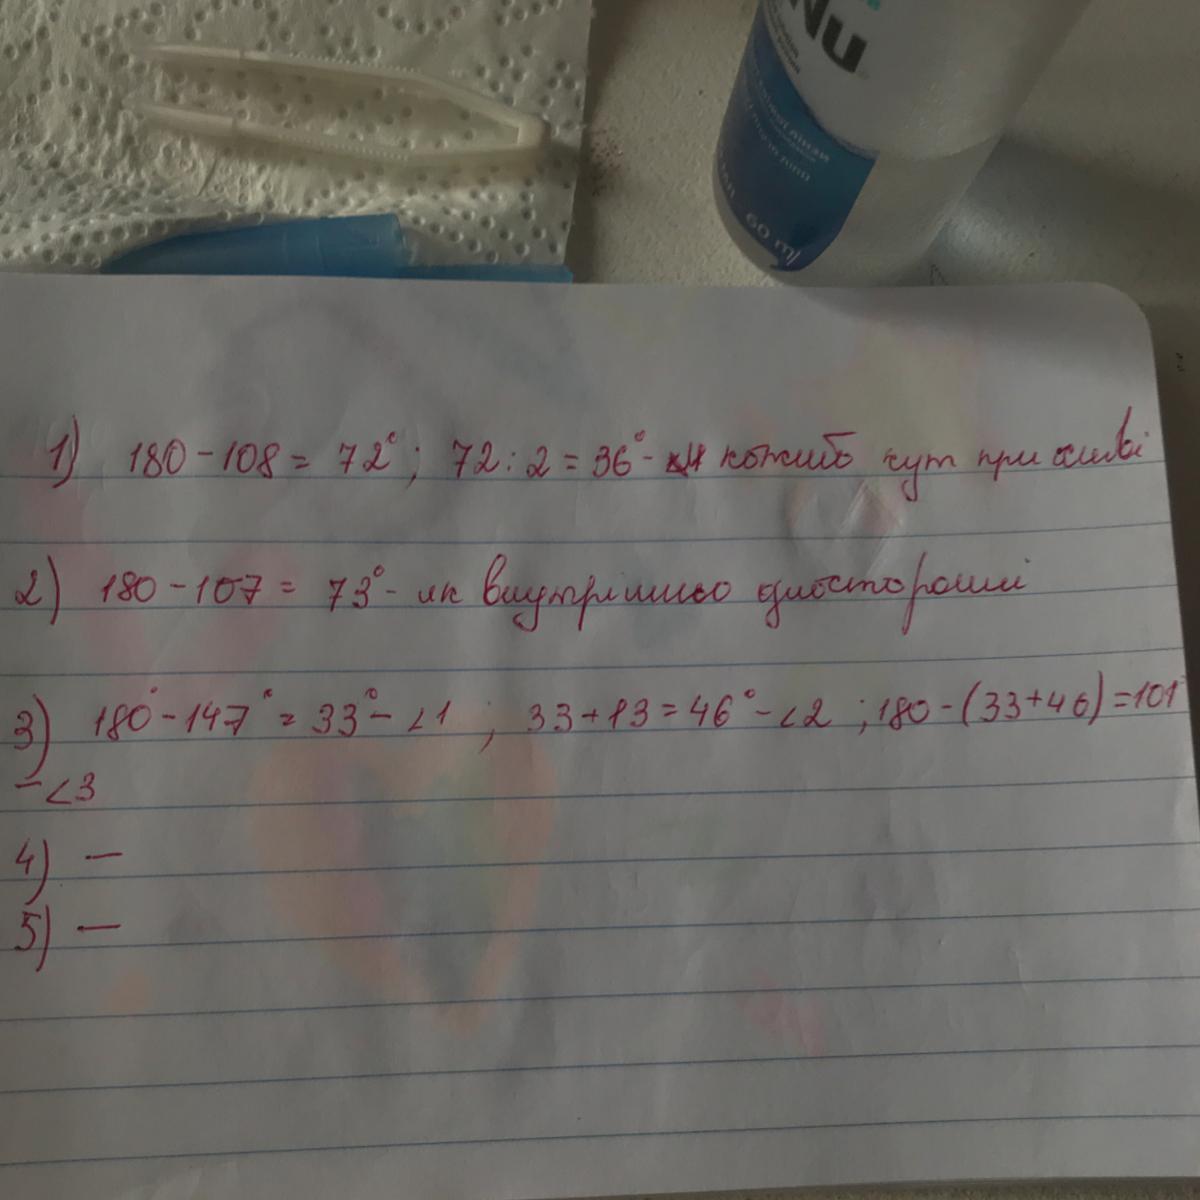 Nu
60 ml
1) 180 - 108 = 72°; 72 : 2 = 36° - кут при основі
2) 180 - 107 = 73° - як внутрішньо односторонні
3) 180° - 147° = 33° - <1 ; 33 + 13 = 46° - <2 ; 180 - (33 + 46) = 101°
- <3
4) —
5) —